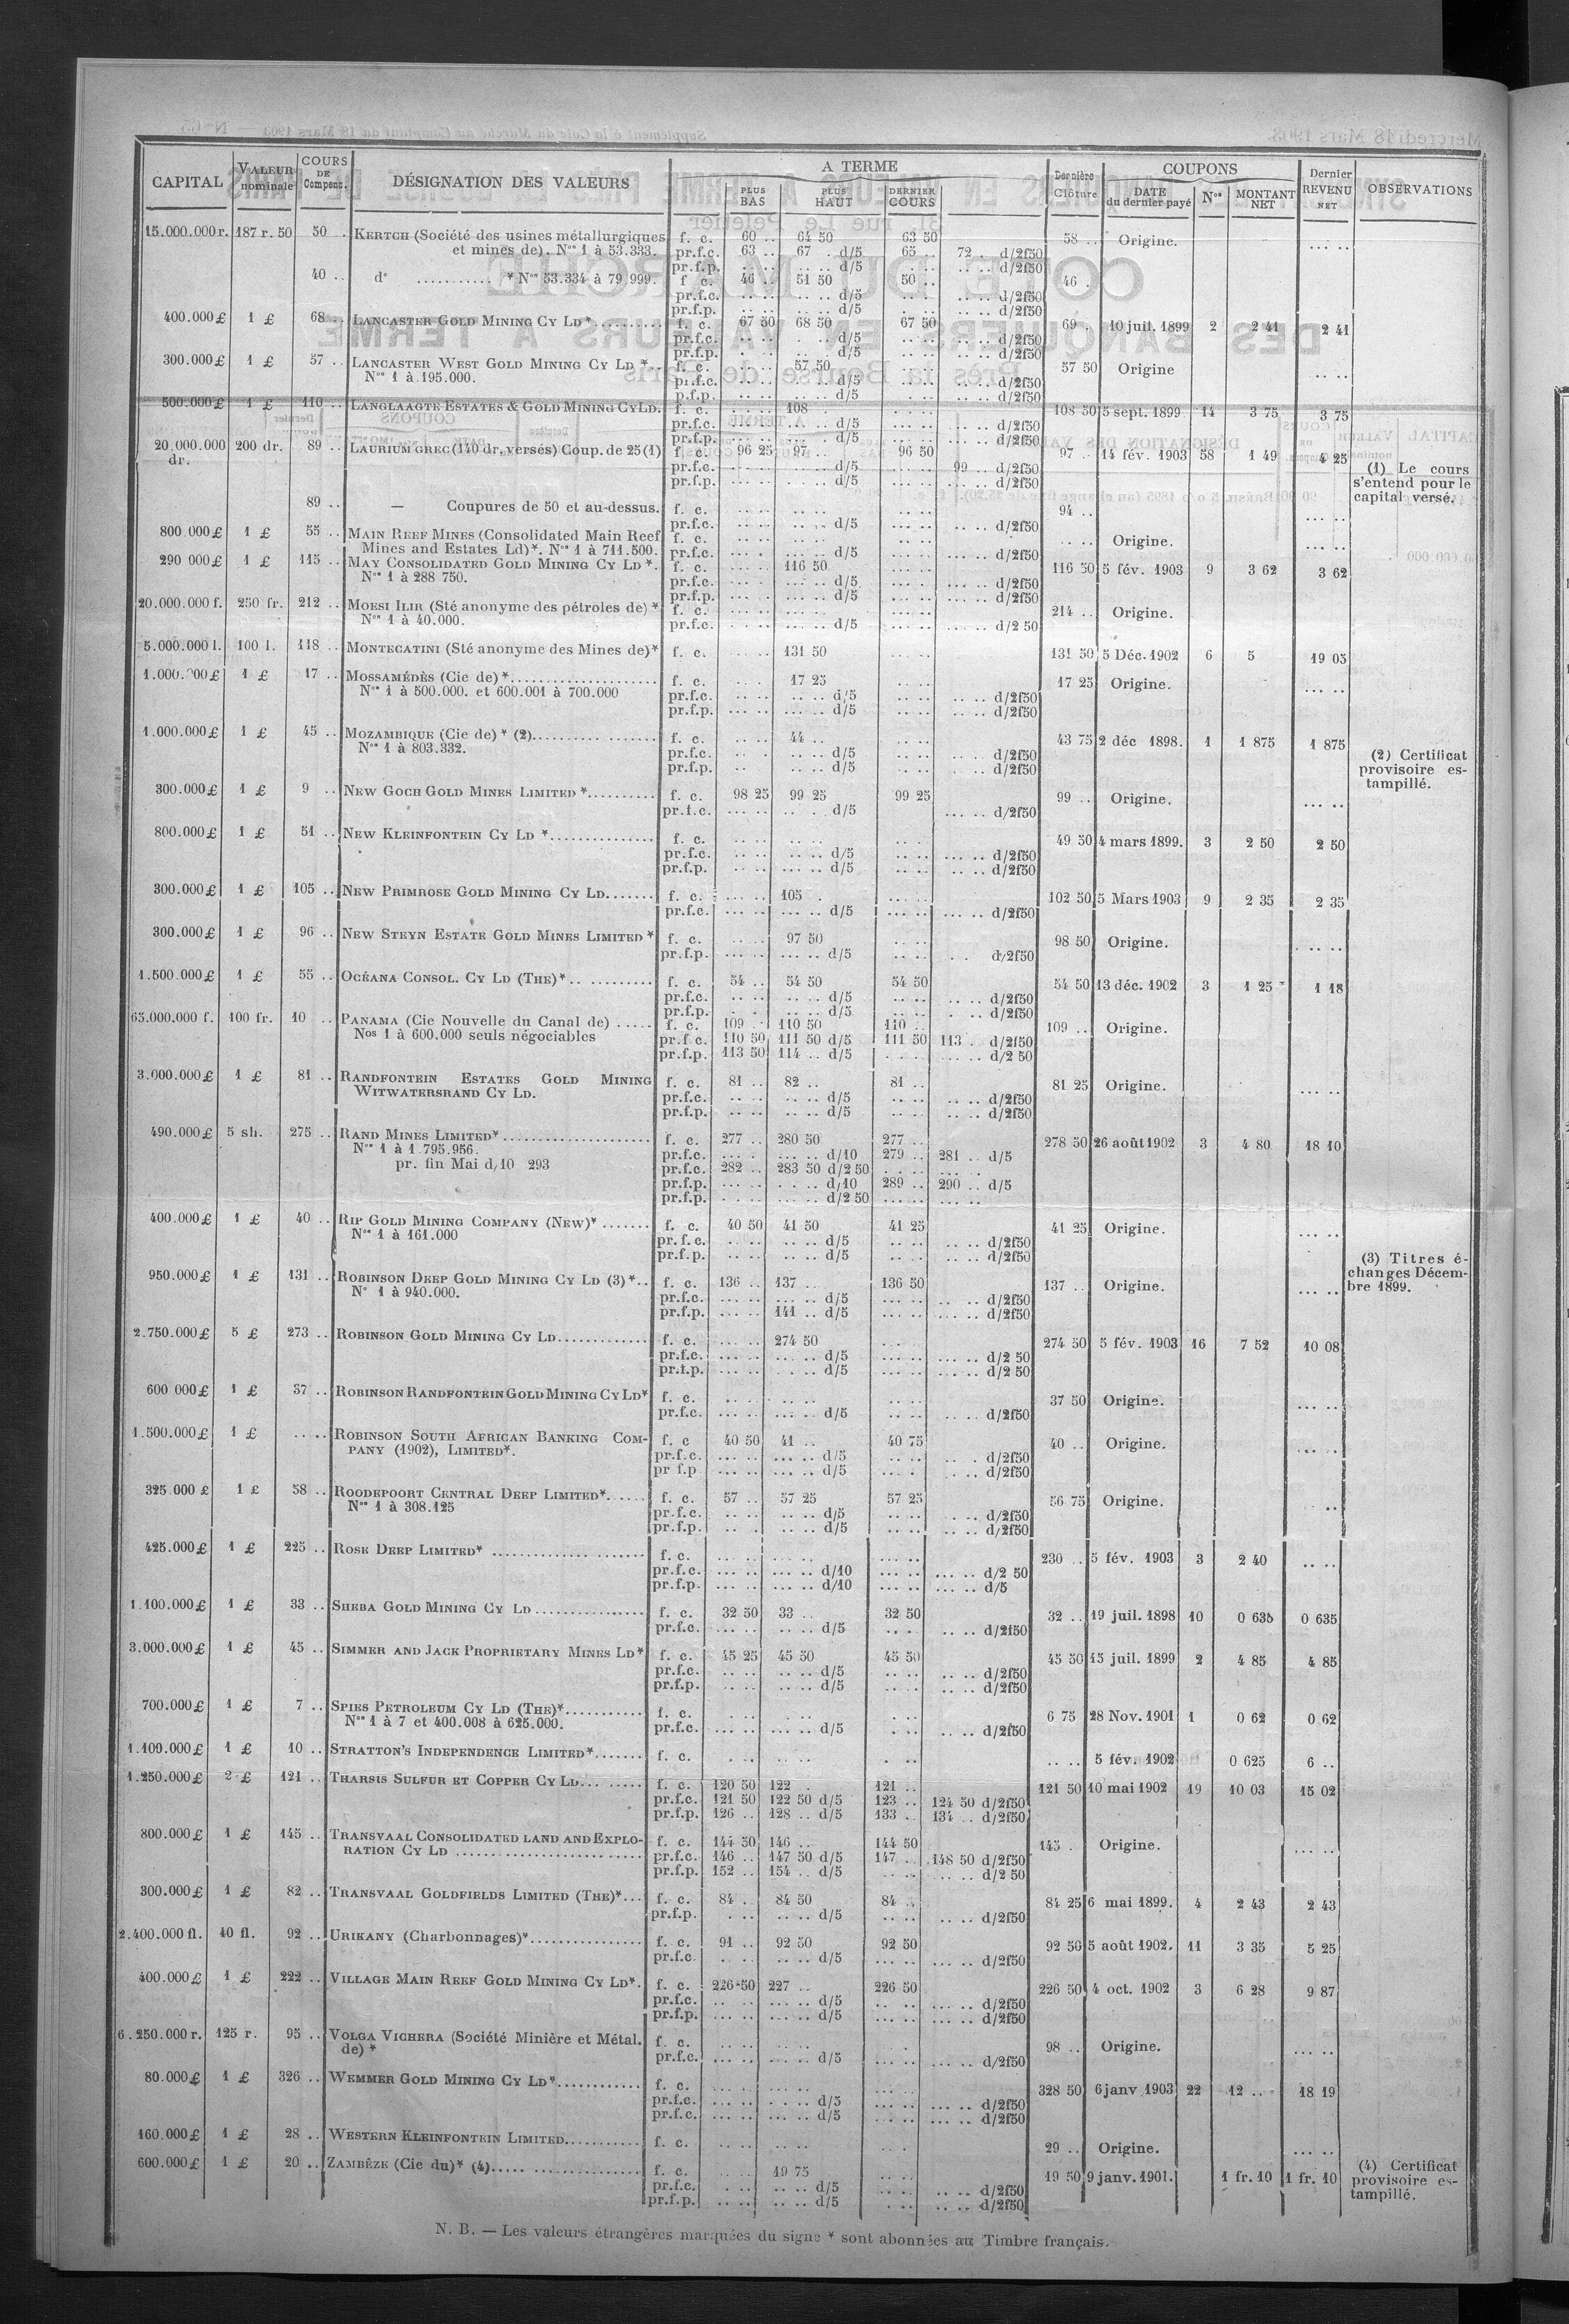 CAPITAL | VALEUR nominale | COURS DE Compens. | DÉSIGNATION DES VALEURS | A TERME | Dernière Clôture | COUPONS | Dernier REVENU NET | OBSERVATIONS
PLUS BAS | PLUS HAUT | DERNIER COURS | DATE du dernier payé | Nos | MONTANT NET
15.000.000 r. | 187 r. 50 | 50 . | KERTCH (Société des usines métallurgiques | f. c. | 60 .. | 64 50 | 63 50 | 58 .. | Origine. | ... ..
et mines de). Nos 1 à 53.333. | pr.f.c. | 63 .. | 67 .. d/5 | 65 .. | 72 .. d/2f50
pr.f.p. | .. .. d/5 | .. .. d/2f50
40 .. | d° ........... * Nos 53.334 à 79.999. | f c. | 46 .. | 51 50 | 50 .. | 46 .
pr.f.c. | d/5 | d/2f50
pr.f.p. | d/5 | d/2f50
400.000 £ | 1 £ | 68 .. | LANCASTER GOLD MINING CY LD * ......... | f. c. | 67 50 | 68 50 | 67 50 | 69 . | 10 juil. 1899 | 2 | 2 41 | 2 41
pr.f.c. | d/5 | d/2f50
pr.f.p. | d/5 | d/2f50
300.000 £ | 1 £ | 57 .. | LANCASTER WEST GOLD MINING CY LD *.. | f. c. | 57 50 | 57 50 | Origine | ... ..
Nos 1 à 195.000. | pr.f.c. | d/5 | d/2f50
p.f.p. | d/5 | d/2f50
500.000 £ | 1 £ | 110 .. | LANGLAAGTE ESTATES & GOLD MINING CY LD. | f. c. | 108 | 108 50 | 5 sept. 1899 | 14 | 3 75 | 3 75
pr.f.c. | d/5 | d/2f50
pr.f.p. | d/5 | d/2f50
20.000.000 dr. | 200 dr. | 89 .. | LAURIUM GREC (140 dr. versés) Coup. de 25 (1) | f. c. | 96 25 | 97 .. | 96 50 | 97 .. | 14 fév. 1903 | 58 | 1 49 | 4 25
pr.f.c. | d/5 | 99 .. d/2f50 | (1) Le cours
pr.f.p. | d/5 | d/2f50 | s'entend pour le
capital versé.
89 .. | — Coupures de 50 et au-dessus. | f. c. | 94 ..
pr.f.c. | d/5 | d/2f50 | ... ..
800 000 £ | 1 £ | 55 .. | MAIN REEF MINES (Consolidated Main Reef | f. c. | .. .. | Origine.
Mines and Estates Ld)*. Nos 1 à 711.500. | pr.f.c. | d/5 | d/2f50 | ... ..
290 000 £ | 1 £ | 115 .. | MAY CONSOLIDATED GOLD MINING CY LD *. | f. c. | 116 50 | 116 50 | 5 fév. 1903 | 9 | 3 62 | 3 62
Nos 1 à 288 750. | pr.f.c. | d/5 | d/2f50
pr.f.p. | d/5 | d/2f50
20.000.000 f. | 250 fr. | 212 .. | MOESI ILIR (Sté anonyme des pétroles de) * | f. c. | 214 .. | Origine.
Nos 1 à 40.000. | pr.f.c. | d/5 | d/2 50
5.000.000 l. | 100 l. | 118 .. | MONTECATINI (Sté anonyme des Mines de)* | f. c. | 131 50 | 131 50 | 5 Déc. 1902 | 6 | 5 | 19 05
1.000.000 £ | 1 £ | 17 .. | MOSSAMÉDÈS (Cie de) *.................... | f. c. | 17 25 | 17 25 | Origine. | ... ..
Nos 1 à 500.000. et 600.001 à 700.000 | pr.f.c. | d/5 | d/2f50
pr.f.p. | d/5 | d/2f50
1.000.000 £ | 1 £ | 45 .. | MOZAMBIQUE (Cie de) * (2).......... ....... | f. c. | 44 .. | 43 75 | 2 déc 1898. | 1 | 1 875 | 1 875
Nos 1 à 803.332. | pr.f.c. | d/5 | d/2f50 | (2) Certificat
pr.f.p. | d/5 | d/2f50 | provisoire es-
tampillé.
300.000 £ | 1 £ | 9 .. | NEW GOCH GOLD MINES LIMITED *.......... | f. c. | 98 25 | 99 25 | 99 25 | 99 .. | Origine. | ... ..
pr.f.c. | d/5 | d/2f50
800.000 £ | 1 £ | 51 .. | NEW KLEINFONTEIN CY LD *............... | f. c. | 49 50 | 4 mars 1899. | 3 | 2 50 | 2 50
pr.f.c. | d/5 | d/2f50
pr.f.p. | d/5 | d/2f50
300.000 £ | 1 £ | 105 .. | NEW PRIMROSE GOLD MINING CY LD....... | f. c. | 105 . | 102 50 | 5 Mars 1903 | 9 | 2 35 | 2 35
pr.f.c. | d/5 | d/2f50
300.000 £ | 1 £ | 96 .. | NEW STEYN ESTATE GOLD MINES LIMITED * | f. c. | 97 50 | 98 50 | Origine. | ... ..
pr.f.p. | d/5 | d/2f50
1.500.000 £ | 1 £ | 55 .. | OCÉANA CONSOL. CY LD (THE) *.. ......... | f. c. | 54 .. | 54 50 | 54 50 | 54 50 | 13 déc. 1902 | 3 | 1 25 | 1 18
pr.f.c. | d/5 | d/2f50
pr.f.p. | d/5 | d/2f50
65.000.000 f. | 100 fr. | 10 .. | PANAMA (Cie Nouvelle du Canal de) ..... | f. c. | 109 .. | 110 50 | 110 .. | 109 .. | Origine.
Nos 1 à 600.000 seuls négociables | pr.f.c. | 110 50 | 111 50 d/5 | 111 50 | 113 . d/2f50
pr.f.p. | 113 50 | 114 .. d/5 | d/2 50
3.000.000 £ | 1 £ | 81 .. | RANDFONTEIN ESTATES GOLD MINING | f. c. | 81 .. | 82 .. | 81 .. | 81 25 | Origine. | ... ..
WITWATERSRAND CY LD. | pr.f.c. | d/5 | d/2f50
pr.f.p. | d/5 | d/2f50
490.000 £ | 5 sh. | 275 .. | RAND MINES LIMITED*..................... | f. c. | 277 .. | 280 50 | 277 .. | 278 50 | 26 août 1902 | 3 | 4 80 | 18 10
Nos 1 à 1.795.956. | pr.f.c. | d/10 | 279 .. | 281 .. d/5
pr. fin Mai d/10 293 | pr.f.c. | 282 .. | 283 50 d/2 50
pr.f.p. | d/10 | 289 .. | 290 .. d/5
pr.f.p. | d/2 50
400.000 £ | 1 £ | 40 .. | RIP GOLD MINING COMPANY (NEW)* ....... | f. c. | 40 50 | 41 50 | 41 25 | 41 25 | Origine. | ... ..
Nos 1 à 161.000 | pr.f.c. | d/5 | d/2f50
pr.f.p. | d/5 | d/2f50 | (3) Titres é-
950.000 £ | 1 £ | 131 .. | ROBINSON DEEP GOLD MINING CY LD (3) *.. | f. c. | 136 .. | 137 .. | 136 50 | 137 .. | Origine. | ... .. | changes Décem-
N° 1 à 940.000. | pr.f.c. | d/5 | d/2f50 | bre 1899.
pr.f.p. | 141 .. d/5 | d/2f50
2.750.000 £ | 5 £ | 273 .. | ROBINSON GOLD MINING CY LD............. | f. c. | 274 50 | 274 50 | 5 fév. 1903 | 16 | 7 52 | 10 08
pr.f.c. | d/5 | d/2 50
pr.f.p. | d/5 | d/2 50
600 000 £ | 1 £ | 37 .. | ROBINSON RANDFONTEIN GOLD MINING CY LD* | f. c. | 37 50 | Origine. | ... ..
pr.f.c. | d/5 | d/2f50
1.500.000 £ | 1 £ | .. .. | ROBINSON SOUTH AFRICAN BANKING COM- | f. c | 40 50 | 41 .. | 40 75 | 40 .. | Origine. | ... ..
PANY (1902), LIMITED*. | pr.f.c. | d/5 | d/2f50
pr f.p | d/5 | d/2f50
325.000 £ | 1 £ | 58 .. | ROODEPOORT CENTRAL DEEP LIMITED*...... | f. c. | 57 .. | 57 25 | 57 25 | 56 75 | Origine. | ..
Nos 1 à 308.125 | pr.f.c. | d/5 | d/2f50
pr.f.p. | d/5 | d/2f50
425.000 £ | 1 £ | 225 .. | ROSE DEEP LIMITED* .............. ....... | f. c. | 230 .. | 5 fév. 1903 | 3 | 2 40 | .. ..
pr.f.c. | d/10 | d/2 50
pr.f.p. | d/10 | d/5
1.100.000 £ | 1 £ | 33 .. | SHEBA GOLD MINING CY LD................ | f. c. | 32 50 | 33 .. | 32 50 | 32 .. | 19 juil. 1898 | 10 | 0 635 | 0 635
pr.f.c. | d/5 | d/2f50
3.000.000 £ | 1 £ | 45 .. | SIMMER AND JACK PROPRIETARY MINES LD* | f. c. | 45 25 | 45 50 | 45 50 | 45 50 | 15 juil. 1899 | 2 | 4 85 | 4 85
pr.f.c. | d/5 | d/2f50
pr.f.p. | d/5 | d/2f50
700.000 £ | 1 £ | 7 .. | SPIES PETROLEUM CY LD (THE)*........... | f. c. | 6 75 | 28 Nov. 1901 | 1 | 0 62 | 0 62
Nos 1 à 7 et 400.008 à 625.000. | pr.f.c. | d/5 | d/2f50
1.109.000 £ | 1 £ | 10 .. | STRATTON'S INDEPENDENCE LIMITED*....... | f. c. | .. .. | 5 fév. 1902 | 0 625 | 6 ..
1.250.000 £ | 2 £ | 121 .. | THARSIS SULFUR ET COPPER CY LD... ..... | f. c. | 120 50 | 122 . | 121 .. | 121 50 | 10 mai 1902 | 19 | 10 03 | 15 02
pr.f.c. | 121 50 | 122 50 d/5 | 123 .. | 124 50 d/2f50
pr.f.p. | 126 .. | 128 .. d/5 | 133 .. | 134 .. d/2f50
800.000 £ | 1 £ | 145 .. | TRANSVAAL CONSOLIDATED LAND AND EXPLO- | f. c. | 144 50 | 146 .. | 144 50 | 145 . | Origine. | ... ..
RATION CY LD .......................... | pr.f.c. | 146 .. | 147 50 d/5 | 147 .. | 148 50 d/2f50
pr.f.p. | 152 .. | 154 .. d/5 | d/2 50
300.000 £ | 1 £ | 82 .. | TRANSVAAL GOLDFIELDS LIMITED (THE)*... | f. c. | 84 .. | 84 50 | 84 .. | 84 25 | 6 mai 1899. | 4 | 2 43 | 2 43
pr.f.p. | d/5 | d/2f50
2.400.000 fl. | 40 fl. | 92 .. | URIKANY (Charbonnages)*................ | f. c. | 91 .. | 92 50 | 92 50 | 92 50 | 5 août 1902. | 11 | 3 35 | 5 25
pr.f.c. | d/5 | d/2f50
400.000 £ | 1 £ | 222 .. | VILLAGE MAIN REEF GOLD MINING CY LD*. | f. c. | 226 50 | 227 .. | 226 50 | 226 50 | 4 oct. 1902 | 3 | 6 28 | 9 87
pr.f.c. | d/5 | d/2f50
pr.f.p. | d/5 | d/2f50
6.250.000 r. | 125 r. | 95 .. | VOLGA VICHERA (Société Minière et Métal. | f. c. | 98 .. | Origine. | ... ..
de) * | pr.f.c. | d/5 | d/2f50
80.000 £ | 1 £ | 326 .. | WEMMER GOLD MINING CY LD*............ | f. c. | 328 50 | 6 janv 1903 | 22 | 12 .. | 18 19
pr.f.c. | d/5 | d/2f50
pr.f.c. | d/5 | d/2f50
160.000 £ | 1 £ | 28 .. | WESTERN KLEINFONTEIN LIMITED........... | f. c. | 29 .. | Origine. | ... ..
600.000 £ | 1 £ | 20 .. | ZAMBÈZE (Cie du)* (4)..... ............... | f. c. | 19 75 | 19 50 | 9 janv. 1901. | 1 fr. 10 | 1 fr. 10 | (4) Certificat
pr.f.c. | d/5 | d/2f50 | provisoire es-
pr.f.p. | d/5 | d/2f50 | tampillé.
N. B. — Les valeurs étrangères marquées du signe * sont abonnées au Timbre français.